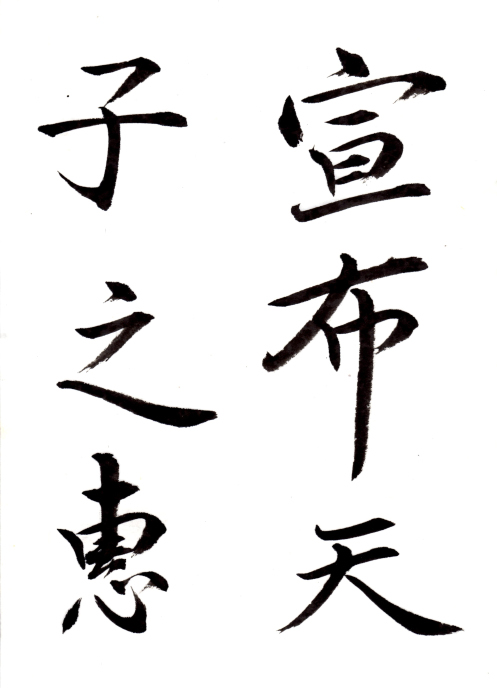 宣布天
子之惠